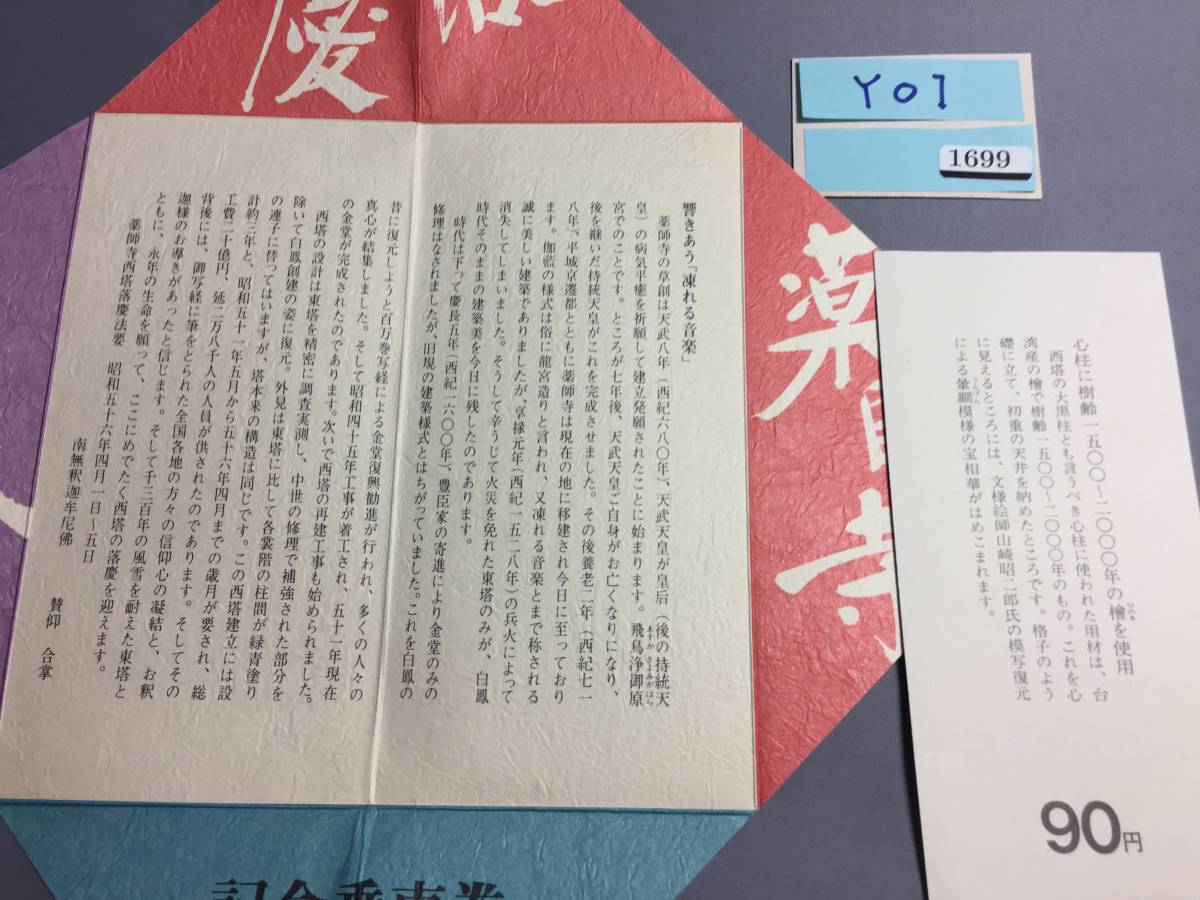 慶
薬師寺
Y01
1699
響きあう「凍れる音楽」
薬師寺の草創は天武八年（西紀六八〇年）、天武天皇が皇后（後の持統天
皇）の病気平癒を祈願して建立発願されたことに始まります。飛鳥浄御原
あすか きよみがはら
宮でのことです。ところが七年後、天武天皇ご自身がお亡くなりになり、
後を継いだ持統天皇がこれを完成させました。その後養老二年（西紀七一
八年）、平城京遷都とともに薬師寺は現在の地に移建され今日に至っており
ます。伽藍の様式は俗に龍宮造りと言われ、又凍れる音楽とまで称される
誠に美しい建築でありましたが、享禄元年（西紀一五二八年）の兵火によって
消失してしまいました。そうして辛うじて火災を免れた東塔のみが、白鳳
時代そのままの建築美を今日に残したのであります。
時代は下って慶長五年（西紀一六〇〇年）、豊臣家の寄進により金堂のみの
修理はなされましたが、旧規の建築様式とはちがっていました。これを白鳳の
昔に復元しようと百万巻写経による金堂復興勧進が行われ、多くの人々の
真心が結集しました。そして昭和四十五年工事が着工され、五十一年現在
の金堂が完成されたのであります。次いで西塔の再建工事も始められました。
西塔の設計は東塔を精密に調査実測し、中世の修理で補強された部分を
除いて白鳳創建の姿に復元。外見は東塔に比して各裳階の柱間が緑青塗り
の連子に替ってはいますが、塔本来の構造は同じです。この西塔建立には設
計約三年と、昭和五十一年五月から五十六年四月までの歳月が要され、総
工費二十億円、延二万八千人の人員が供されたのであります。そしてその
背後には、御写経に筆をとられた全国各地の方々の信仰心の凝結と、お釈
迦様のお導きがあったと信じます。そして千三百年の風雪を耐えた東塔と
ともに、永年の生命を願って、ここにめでたく西塔の落慶を迎えます。
薬師寺西塔落慶法要 昭和五十六年四月一日～五日
南無釈迦牟尼佛
賛仰 合掌
心柱に樹齢一五〇〇～二〇〇〇年の檜を使用
ひのき
西塔の大黒柱とも言うべき心柱に使われた用材は、台
湾産の檜で樹齢一五〇〇～二〇〇〇年のもの。これを心
礎に立て、初重の天井を納めたところです。格子のよう
に見えるところには、文様絵師山崎昭二郎氏の模写復元
うんげん
による繧繝模様の宝相華がはめこまれます。
90円
記念乗車券